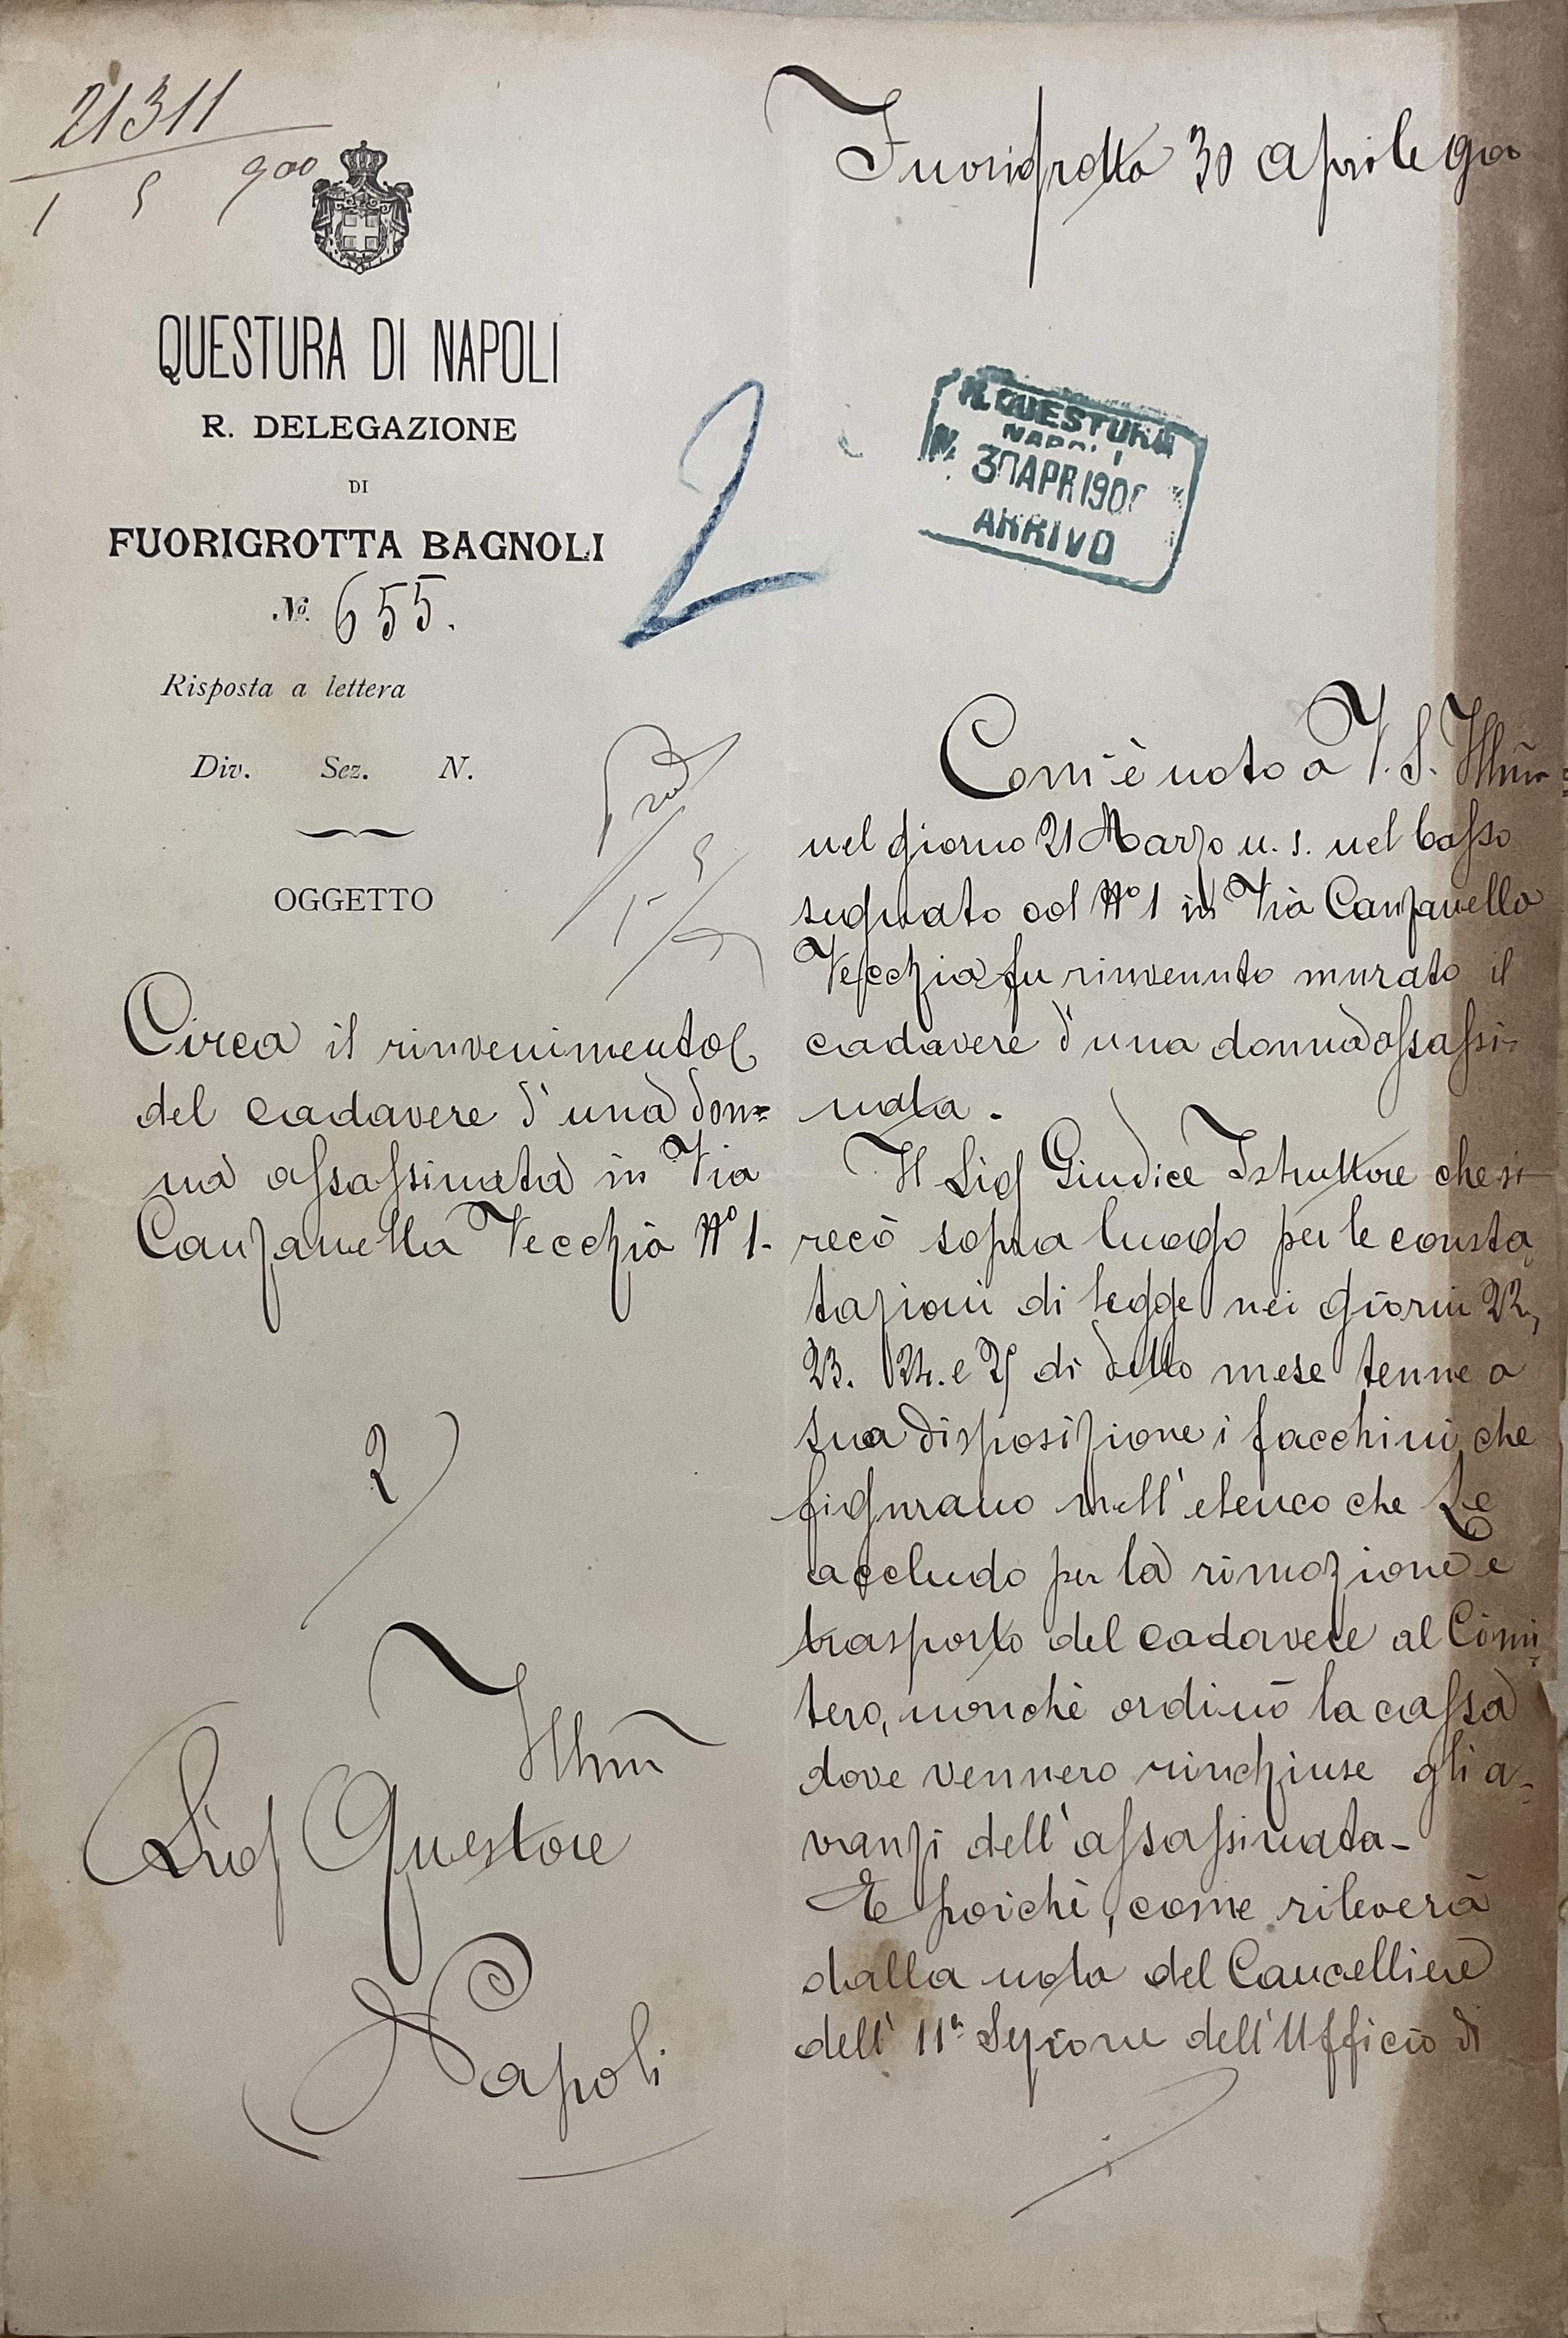 21311
1 5 900
Fuorigrotta 30 aprile 900
QUESTURA DI NAPOLI
R. DELEGAZIONE
DI
FUORIGROTTA BAGNOLI
№ 655.
Risposta a lettera
Div. Sez. N.
OGGETTO
Circa il rinvenimento
del cadavere d'una don=
na assassinata in Via
Canzanella Vecchia N° 1.
2
2
Illmo
Sig Questore
Napoli
R. QUESTURA
NAPOLI
N. 30 APR 1900
ARRIVO
1-5
Com'è noto a V. S. Illma
nel giorno 21 Marzo u. s. nel basso
segnato col N° 1 in Via Canzanella
Vecchia fu rinvenuto murato il
cadavere d'una donna assassi-
nata.
Il Sig Giudice Istruttore che si
recò sopra luogo per le consta
tazioni di legge nei giorni 22,
23. 24. e 25 di detto mese tenne a
sua disposizione i facchini che
figurano nell'elenco che Le
accludo per la rimozione e
trasporto del cadavere al Cimi
tero, nonchè ordinò la cassa
dove vennero rinchiuse gli a-
vanzi dell'assassinata-
E poichè, come rileverà
dalla nota del Cancelliere
dell' 11ª Sezione dell'Ufficio di